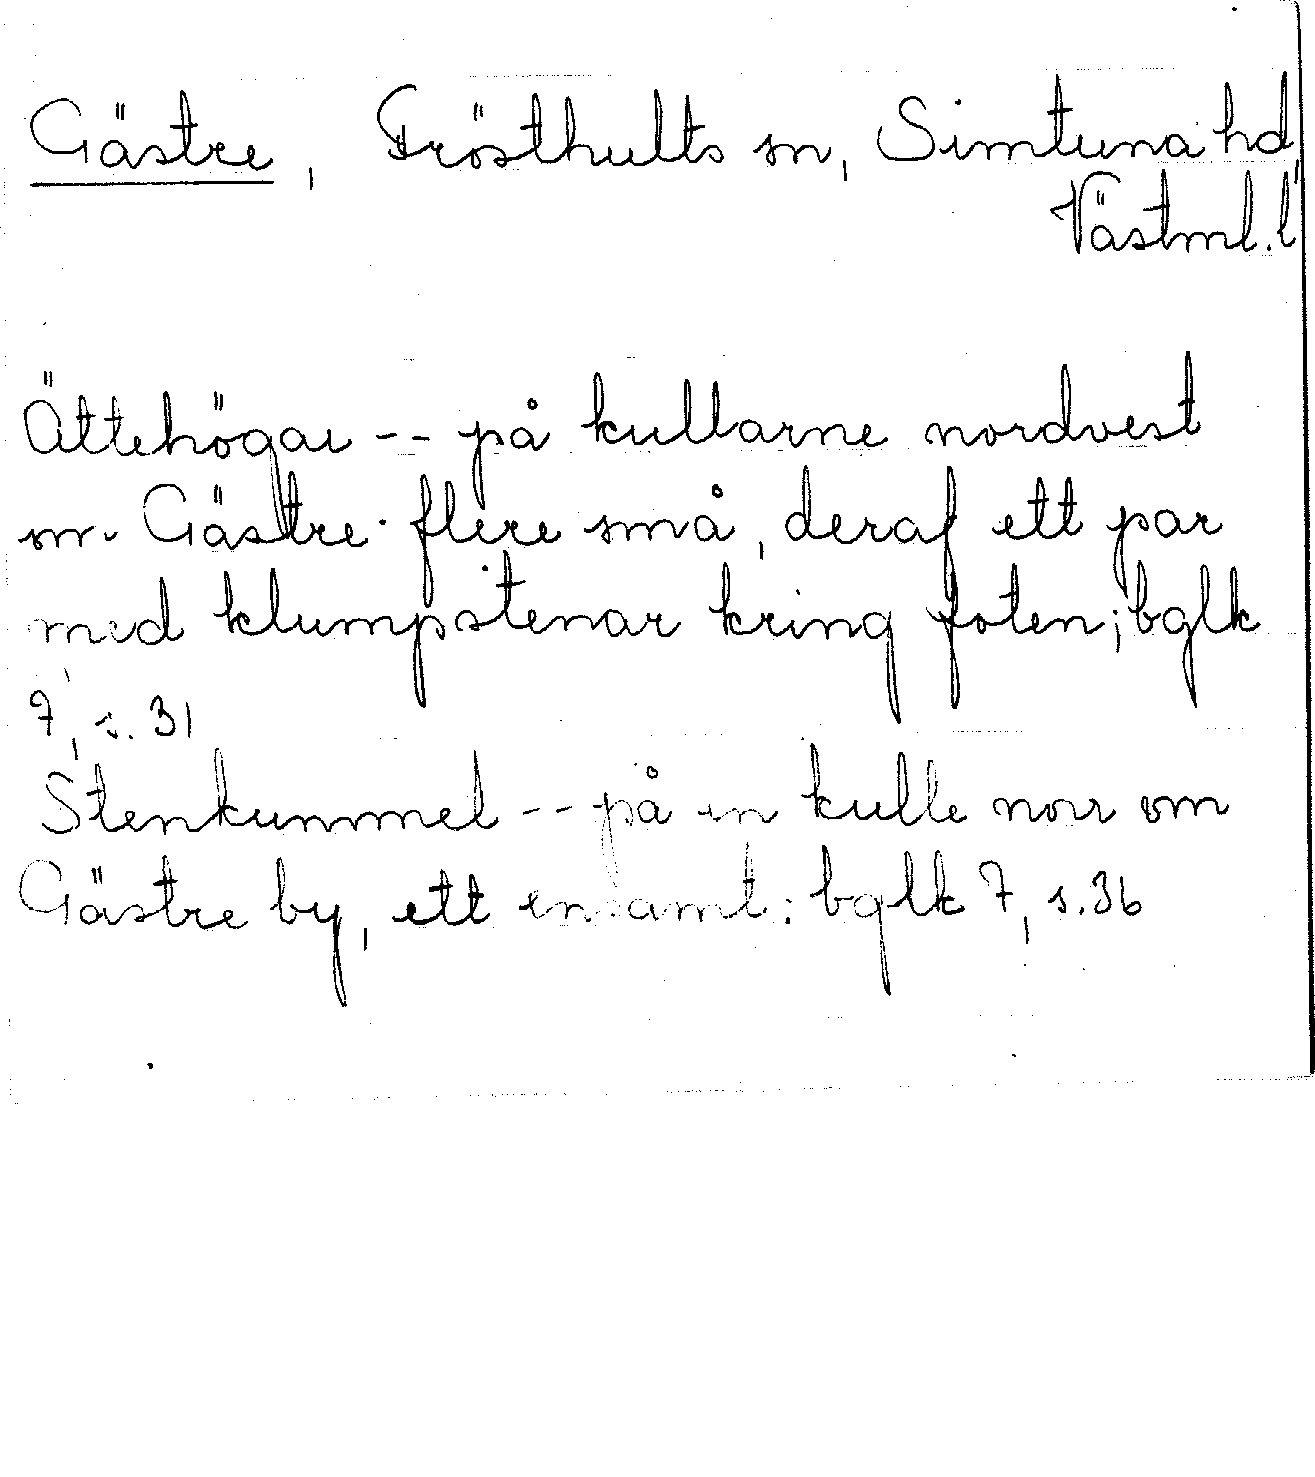 Gästre, Frösthults sn, Simtuna hd,
Västml. l
Ättehögar -- på kullarne nordvest
om Gästre. flere små, deraf ett par
med klumpstenar kring foten; bglk
7, s. 31
Stenkummel -- på en kulle norr om
Gästre by, ett ensamt: bglk 7, s. 36